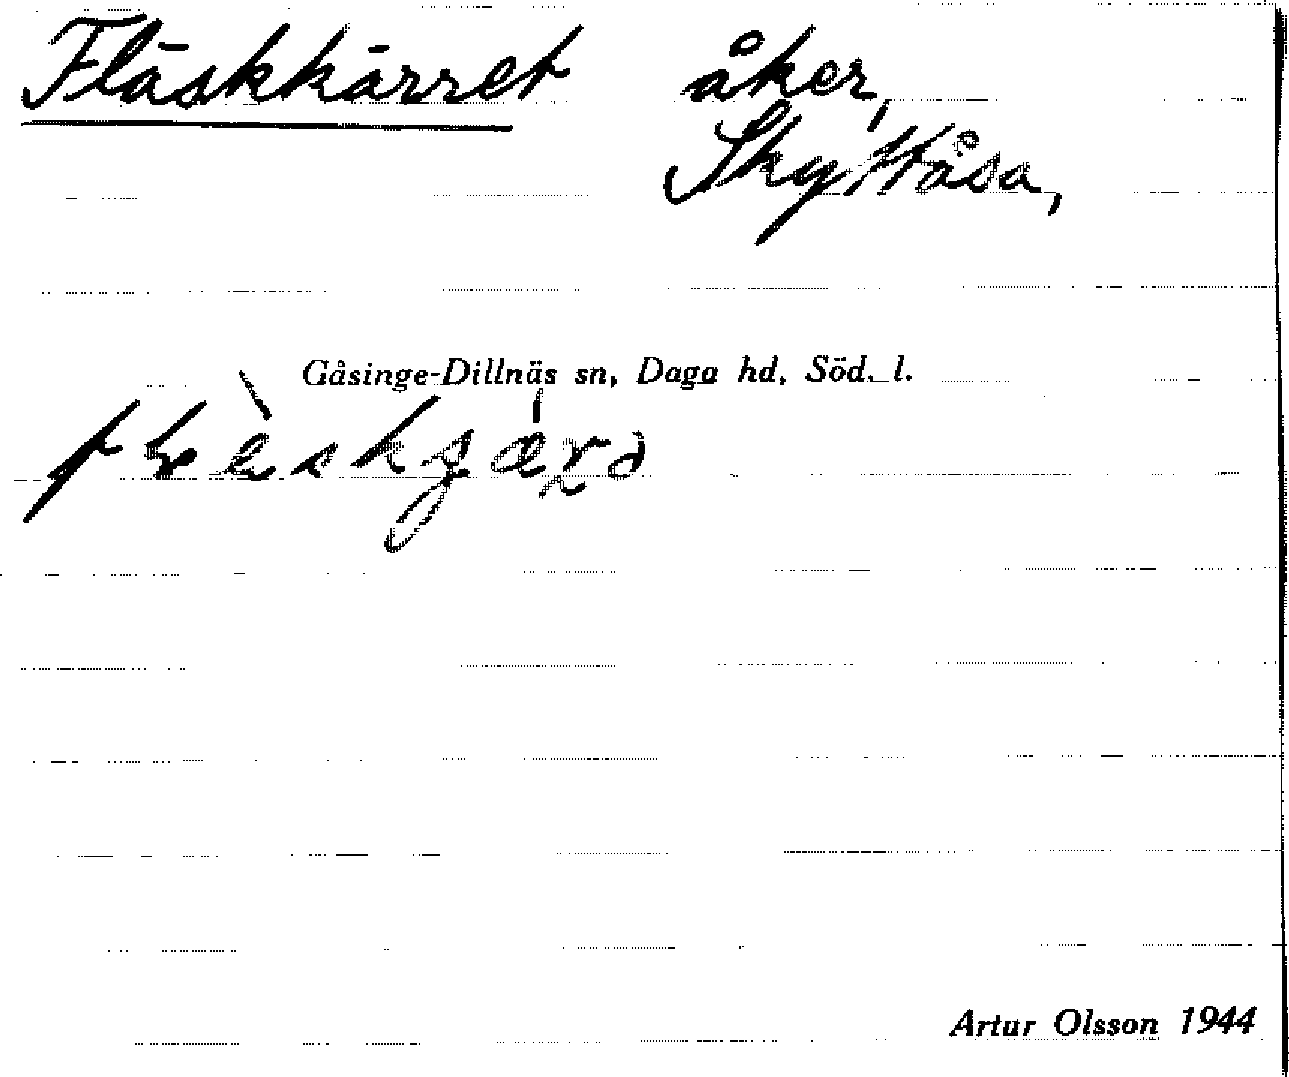 Fläskkärret åker,
Skyttåsa,
Gåsinge-Dillnäs sn, Daga hd, Söd. l.
Artur Olsson 1944